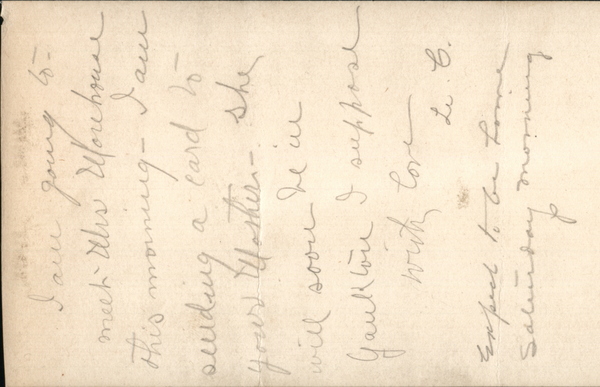 I am going to-
meet Mrs Morehouse
this morning - I am
sending a card to
your Mother - she
will soon be in
Yankton I suppose
with love
L. C.
Expect to be home
Saturday morning